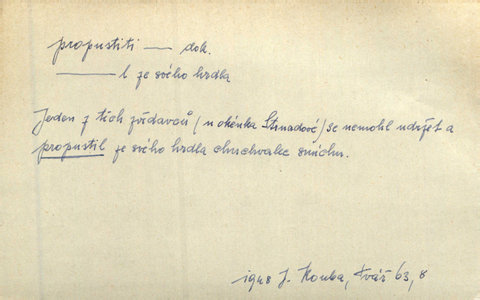 propustiti — dok.
— l ze svého hrdla
Jeden z těch zvědavců (u okénka Strnadové) se nemohl udržet a
propustil ze svého hrdla chuchvalec smíchu.
1948 J. Kouba, Tváš 63, 8